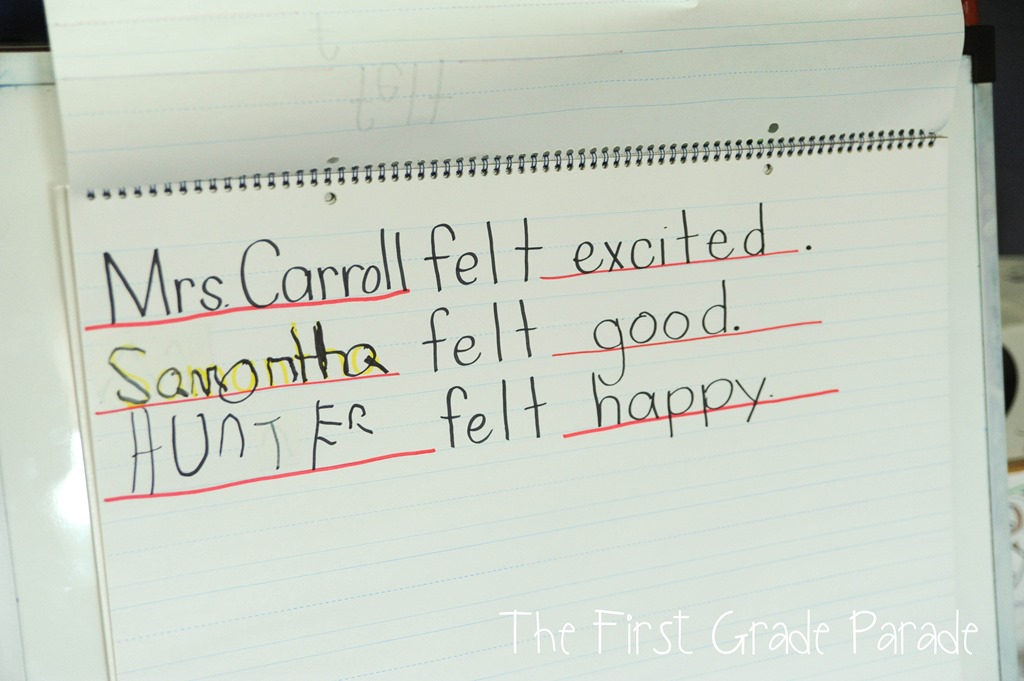 Mrs. Carroll felt excited.
Samantha felt good.
HUnTER felt happy.
The First Grade Parade